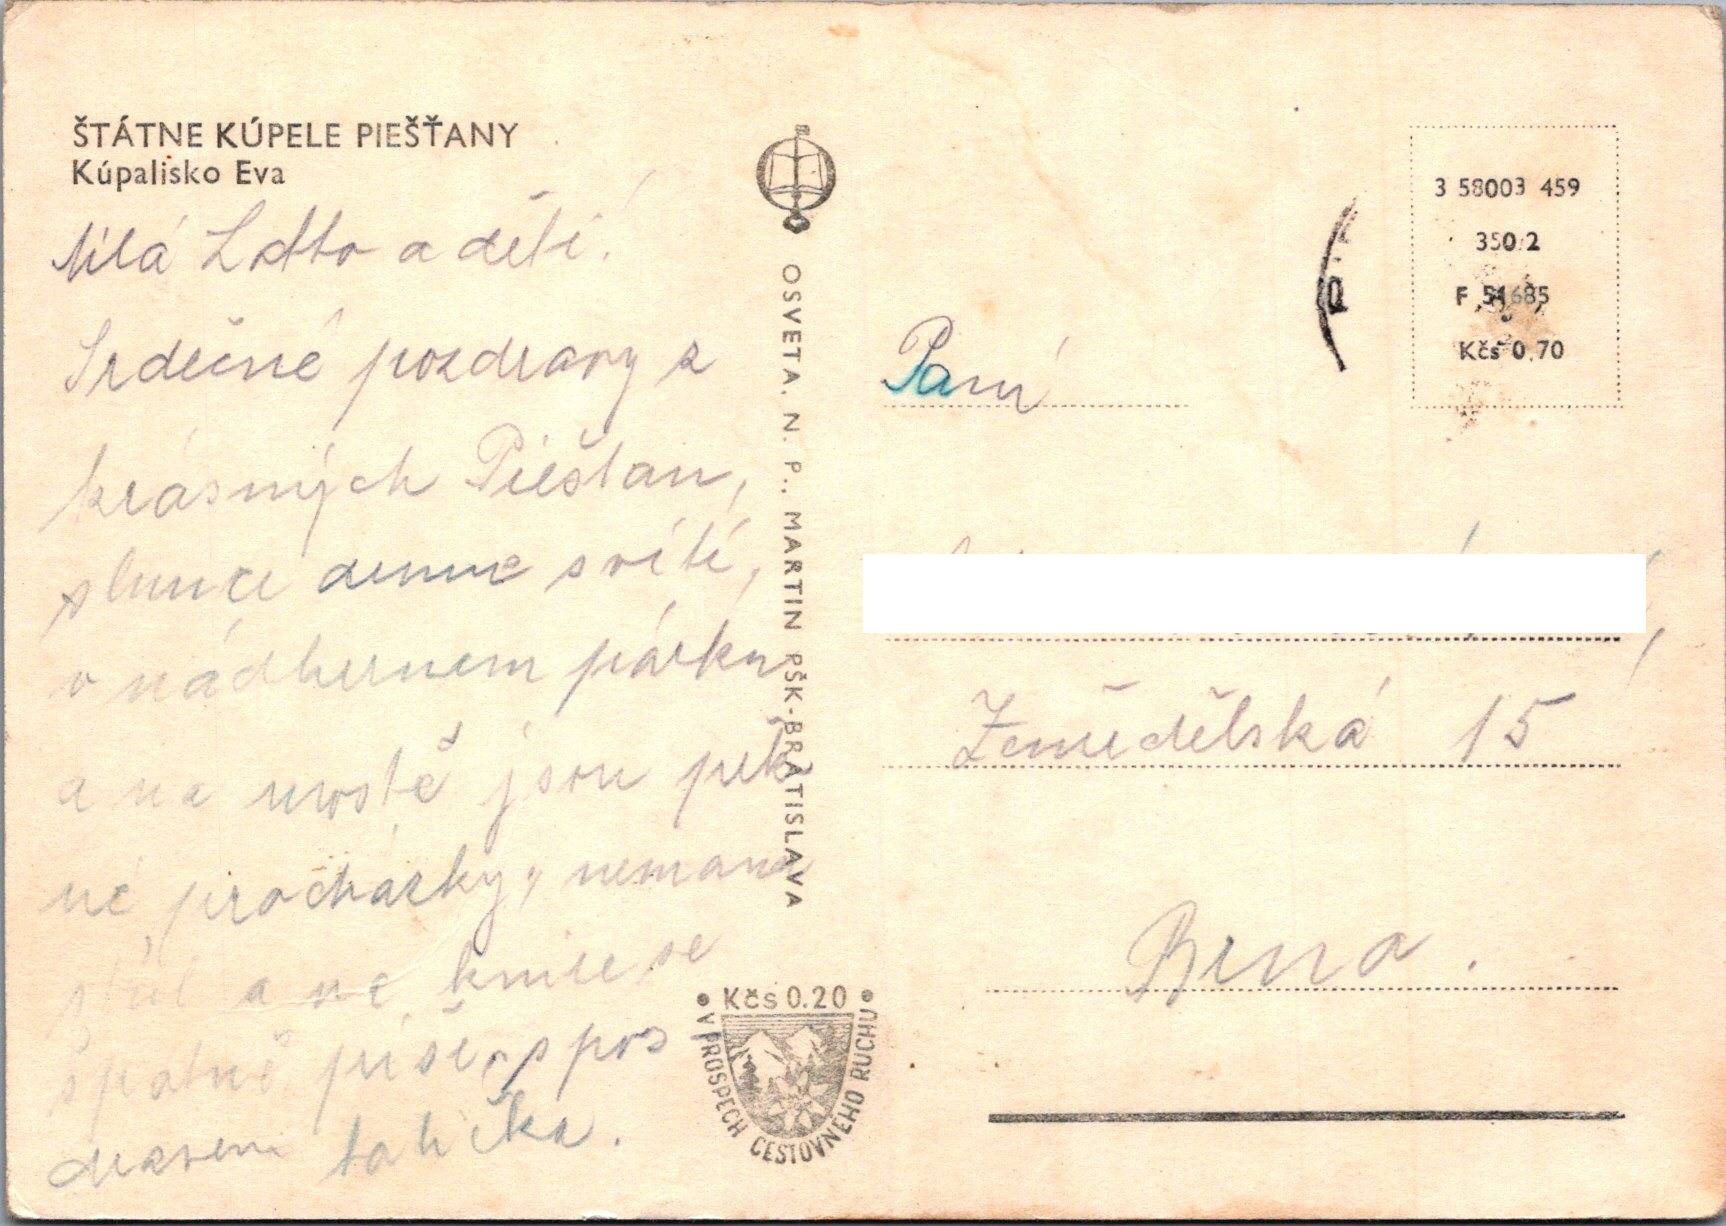 ŠTÁTNE KÚPELE PIEŠŤANY
Kúpalisko Eva
Milá a děti!
Srdečné pozdravy z
krásných Piešťan,
slunce denně svítí,
v nádherném párku
a na mostě jsou pěk
né procházky, nemáme
stůl a na se
špatně píše, s poz
dravem
OSVETA, N. P., MARTIN PŠK-BRATISLAVA
• Kčs 0.20 •
V PROSPECH CESTOVNÉHO RUCHU
3 58003 459
350/2
F 51685
Kčs 0,70
Paní
Zemědělská 15
Brno.